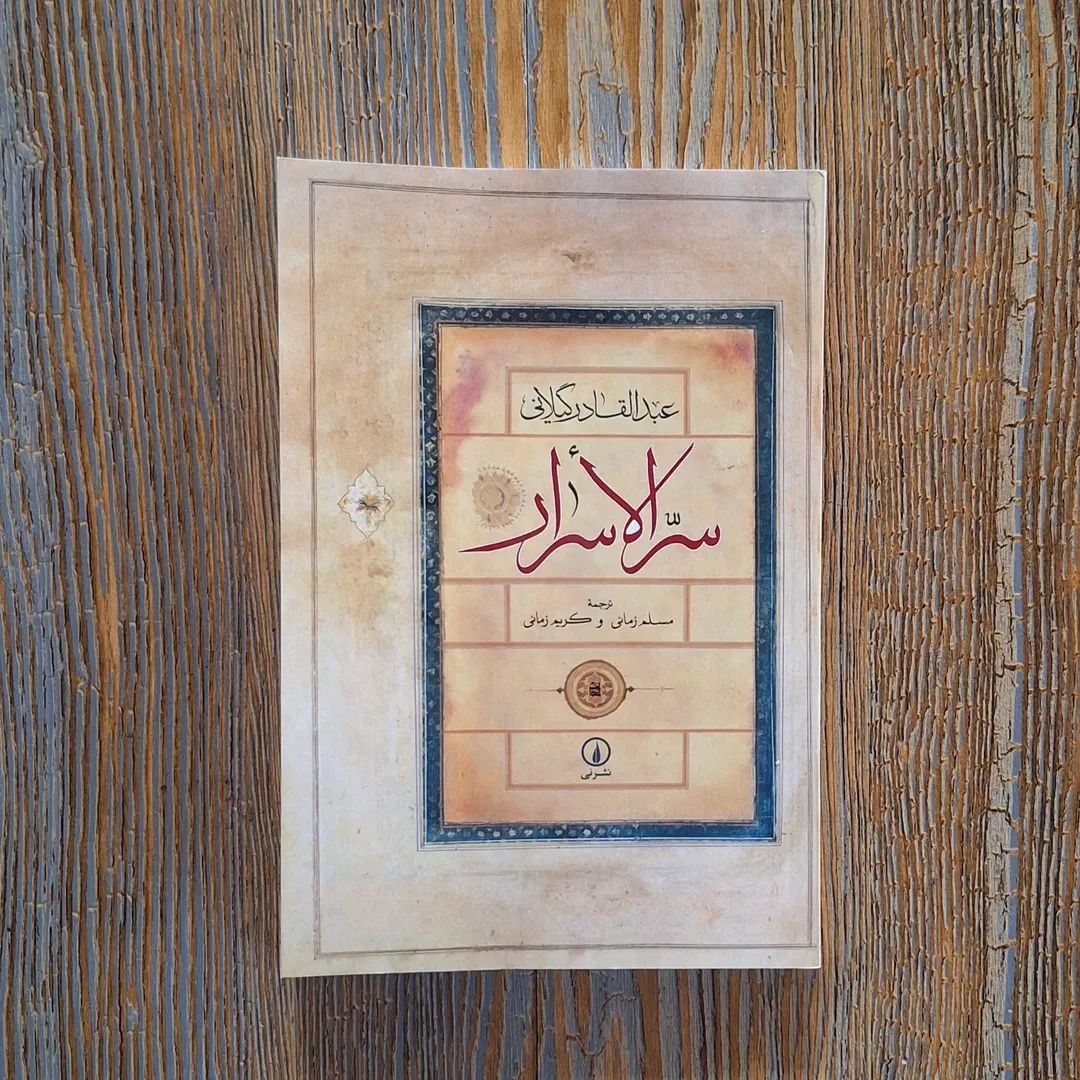 عبدالقادر گیلانی
سرّالأسرار
ترجمهٔ
مسلم زمانی و کریم زمانی
نشرنی